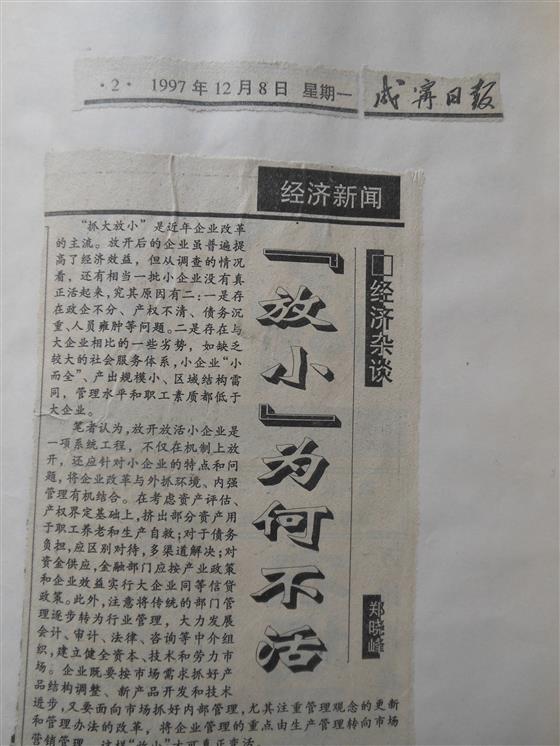 ·2· 1997年12月8日 星期一 咸宁日报
经济新闻
□经济杂谈
「放小」为何不活
郑晓峰
“抓大放小”是近年企业改革
的主流。放开后的企业虽普遍提
高了经济效益，但从调查的情况
看，还有相当一批小企业没有真
正活起来，究其原因有二：一是存
在政企不分、产权不清、债务沉
重、人员雍肿等问题。二是存在与
大企业相比的一些劣势，如缺乏
较大的社会服务体系，小企业“小
而全”、产出规模小、区域结构雷
同，管理水平和职工素质都低于
大企业。
笔者认为，放开放活小企业是
一项系统工程，不仅在机制上放
开，还应针对小企业的特点和问
题，将企业改革与外抓环境、内强
管理有机结合。在考虑资产评估、
产权界定基础上，挤出部分资产用
于职工养老和生产自救；对于债务
负担，应区别对待，多渠道解决；对
资金供应，金融部门应按产业政策
和企业效益实行大企业同等信贷
政策。此外，注意将传统的部门管
理逐步转为行业管理，大力发展
会计、审计、法律、咨询等中介组
织，建立健全资本、技术和劳力市
场。企业既要按市场需求抓好产
品结构调整、新产品开发和技术
进步，又要面向市场抓好内部管理，尤其注重管理观念的更新
和管理办法的改革，将企业管理的重点由生产管理转向市场
营销管理，这样“放小”才可真正变活。